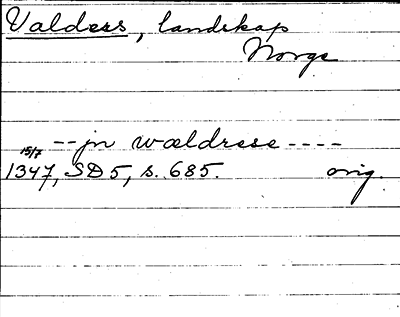 Valders, landskap
Norge
--jn wældresse ----
15/7
1347, SD 5, s. 685. orig.